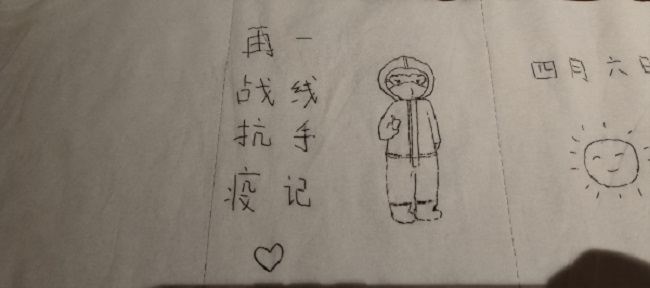 再战抗疫
一线手记
四月六日